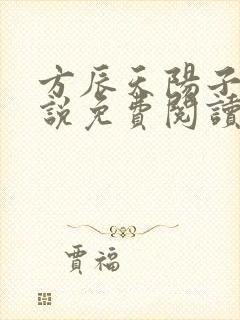 方辰天陽子
說免費閱讀
賈福